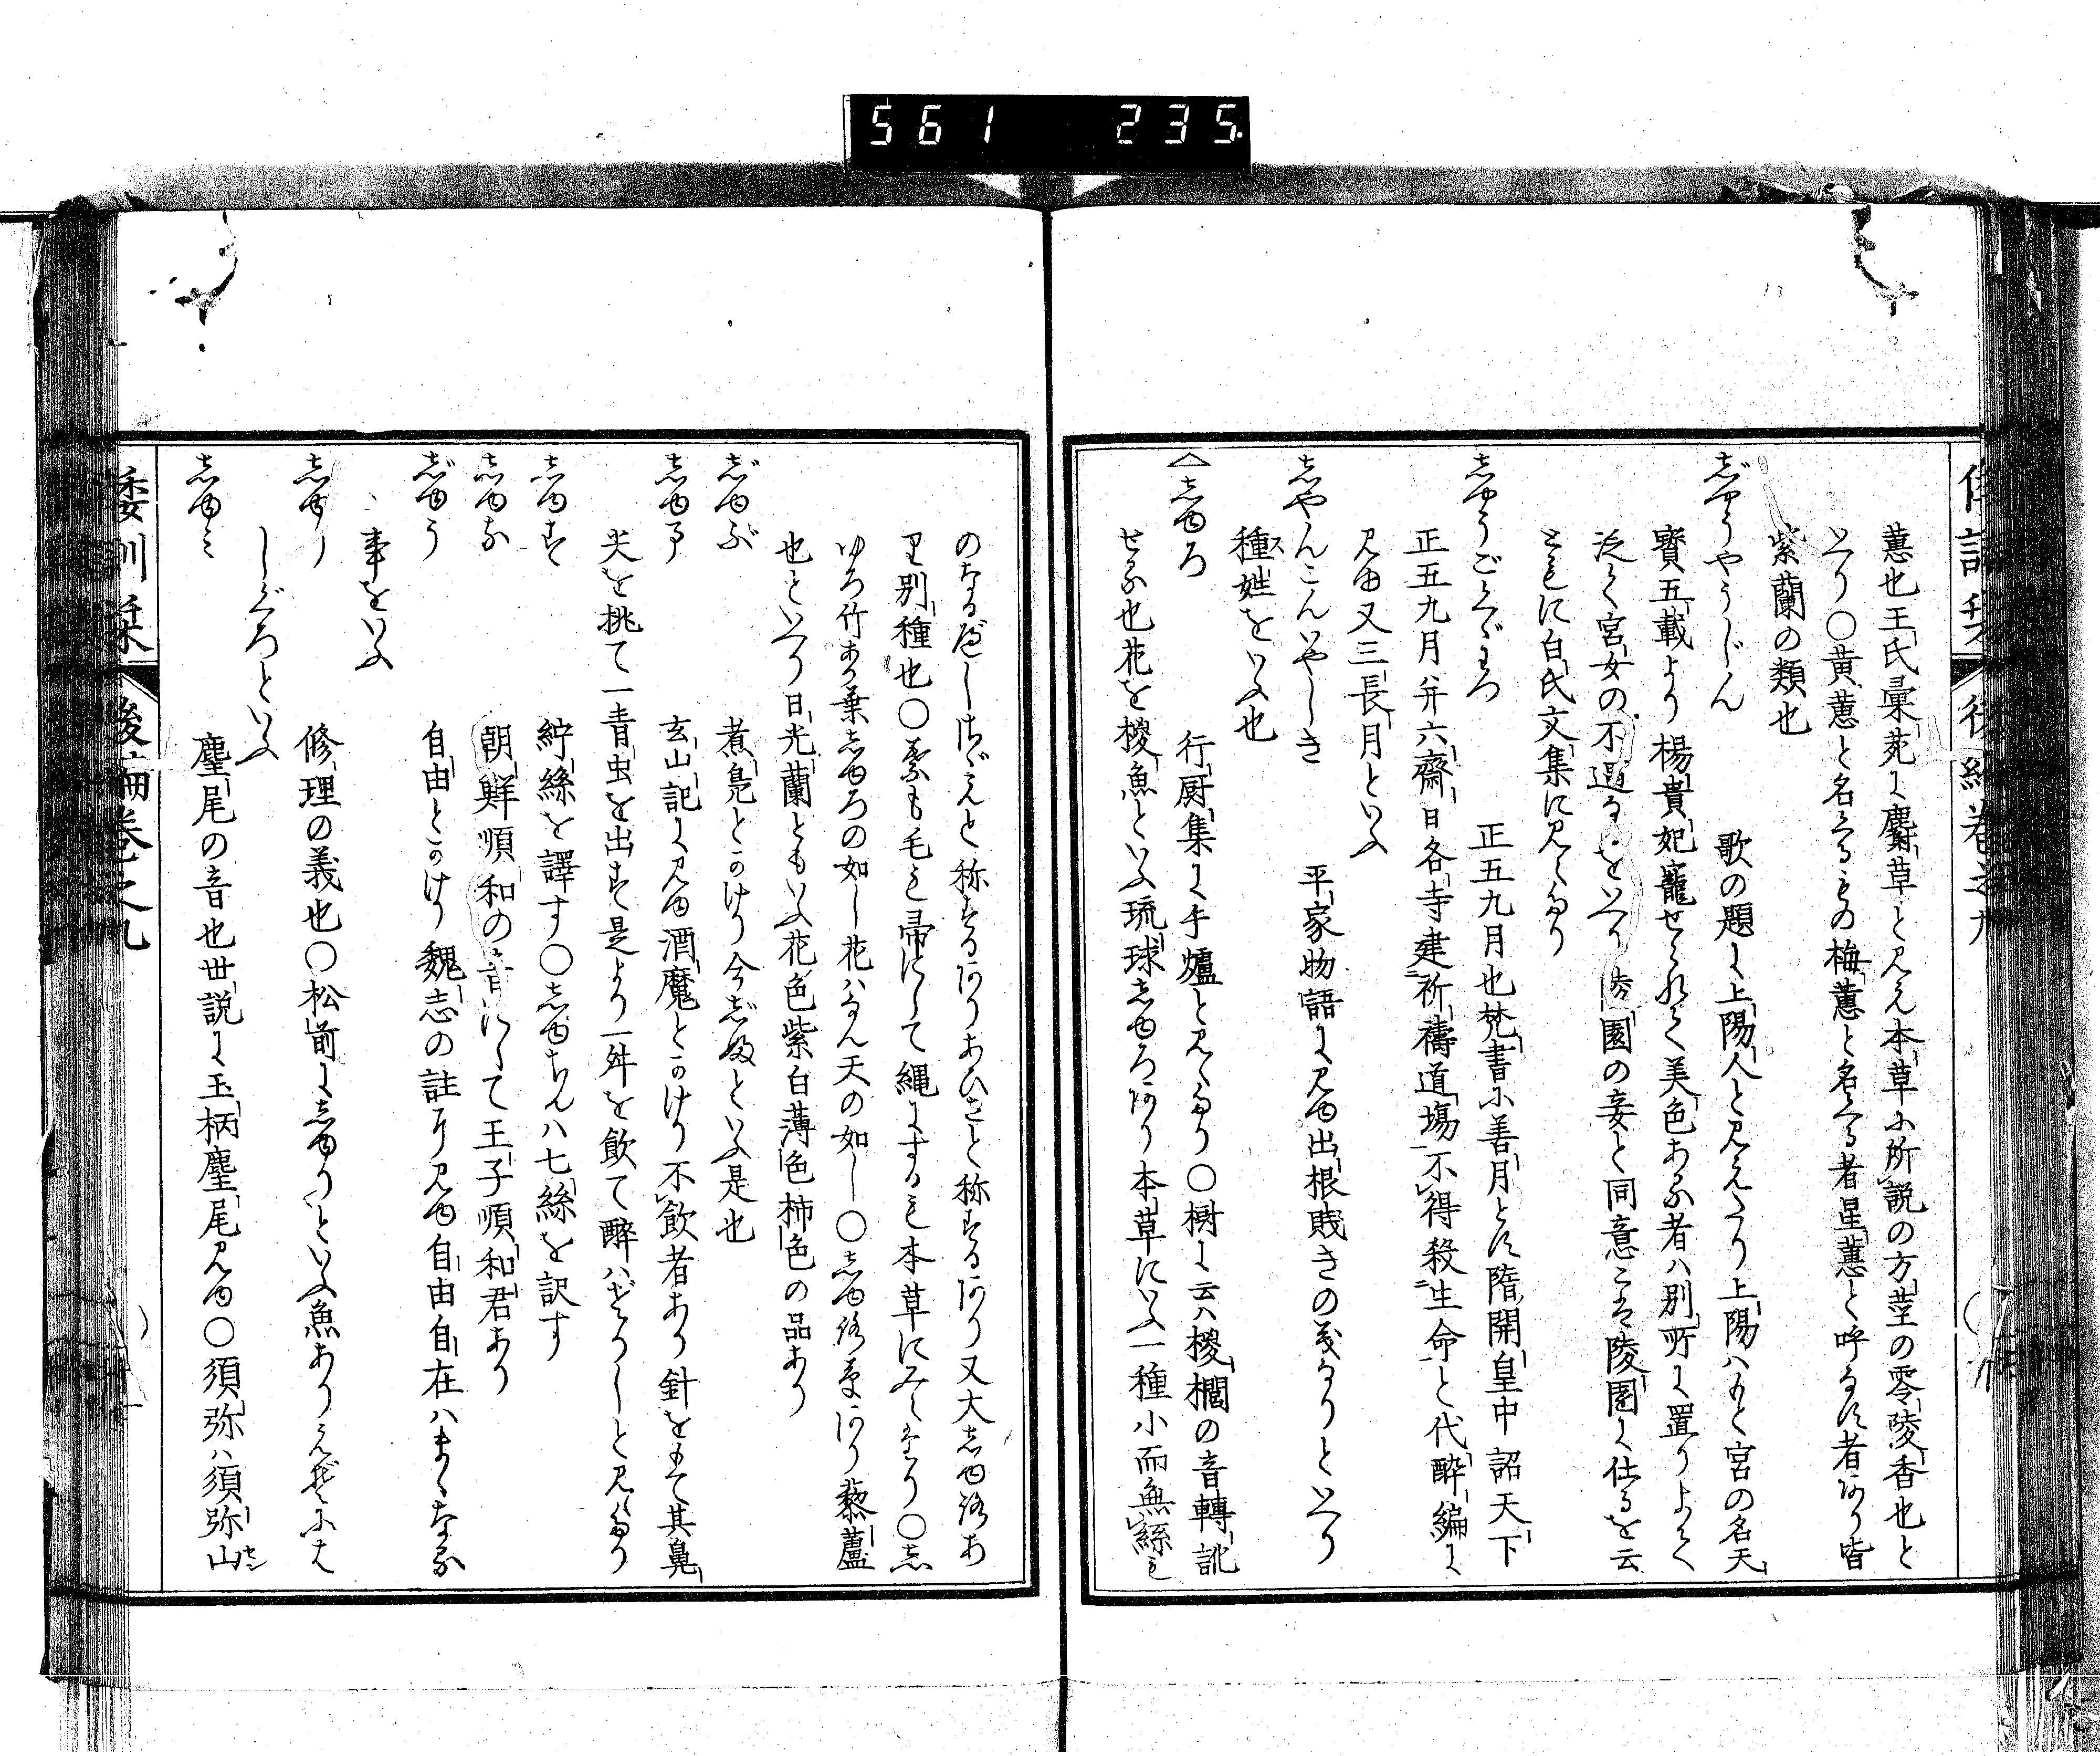 561 235
蕙也王氏彙苑に麝草と見え本草に所説の方莖の零陵香也と
いへり○黄蕙と名くるもの梅蕙と名くる者星蕙と呼なす者あり皆
紫蘭の類也
じやうやうじん 歌の題に上陽人と見えたり上陽ハもと宮の名天
寳五載より楊貴妃寵せられて美色ある者ハ別所に置りよて
泛く宮女の不遇なをいへり陵園の妾と同意こは陵園に仕るを云
ともに白氏文集に見えたり
しやうごくぐわつ 正五九月也梵書に善月とす隋開皇中詔天下
正五九月并六齋日各寺建祈禱道塲不得殺生命と代醉編に
見ゆ又三長月といふ
しやんこんいやしき 平家物語に見ゆ出根賎きの義なりといへり
種姓をいふ也
しゆろ 行厨集に手爐と見えたり○樹に云ハ椶櫚の音轉訛
せる也花を椶魚といふ琉球しゆろあり本草にいふ一種小而無絲も
のなるべしほゞえと称するありあひさと称するあり又大しゆろあ
り別種也○葉も毛も帚にして縄にするも本草にみえたり○し
ゆろ竹あり葉しゆろの如し花ハなん天の如し○しゆろ草あり藜蘆
也といへり日光蘭ともいふ花色紫白薄色柿色の品あり
じゆぶ 煮鳧とかけり今じぶといふ是也
しゆま 玄山記に見ゆ酒魔とかけり不飲者あり針をもて其鼻
尖を挑て一青虫を出す是より一舛を飲て醉ハざりしと見えたり
しゆす 紵絲を譯す○しゆちんハ七絲を訳す
しゆな 朝鮮順和の音にして王子順和君あり
じゆう 自由とかけり魏志の註に見ゆ自由自在ハまゝなる
事をいふ
しゆり 修理の義也○松前にしゆりといふ魚ありえぞには
しぐろといふ
しゆミ 麈尾の音也世説に玉柄麈尾見ゆ○須弥ハ須弥山
倭訓栞 後編巻之九